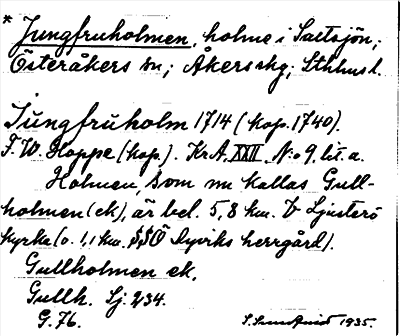 * Jungfruholmen, holme i Saltsjön;
Österåkers sn; Åkers skg; Sthlms l.
Jungfruholm 1714 (kop. 1740).
F. W. Hoppe (kop). KrA, XXII, No 9, lit. a.
Holmen, som nu kallas Gull-
holmen (ek), är bel. 5,8 km. V Ljusterö
kyrka (o. 1,1 km. SSÖ Nyviks herrgård).
Gullholmen ek.
Gullh. Sj. 234.
G. 76.
1935.